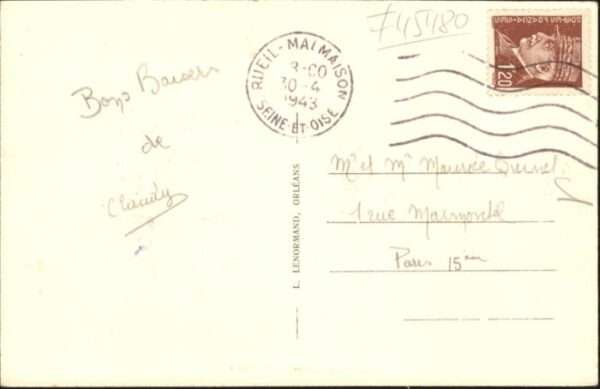 745480
RUEIL-MALMAISON
8-00
30-4
1943
SEINE-ET-OISE
1,20
Bons Baisers
de
Claudy
L. LENORMAND, ORLÉANS
Mr et Me Maurice
1 rue Marmontel
Paris 15em